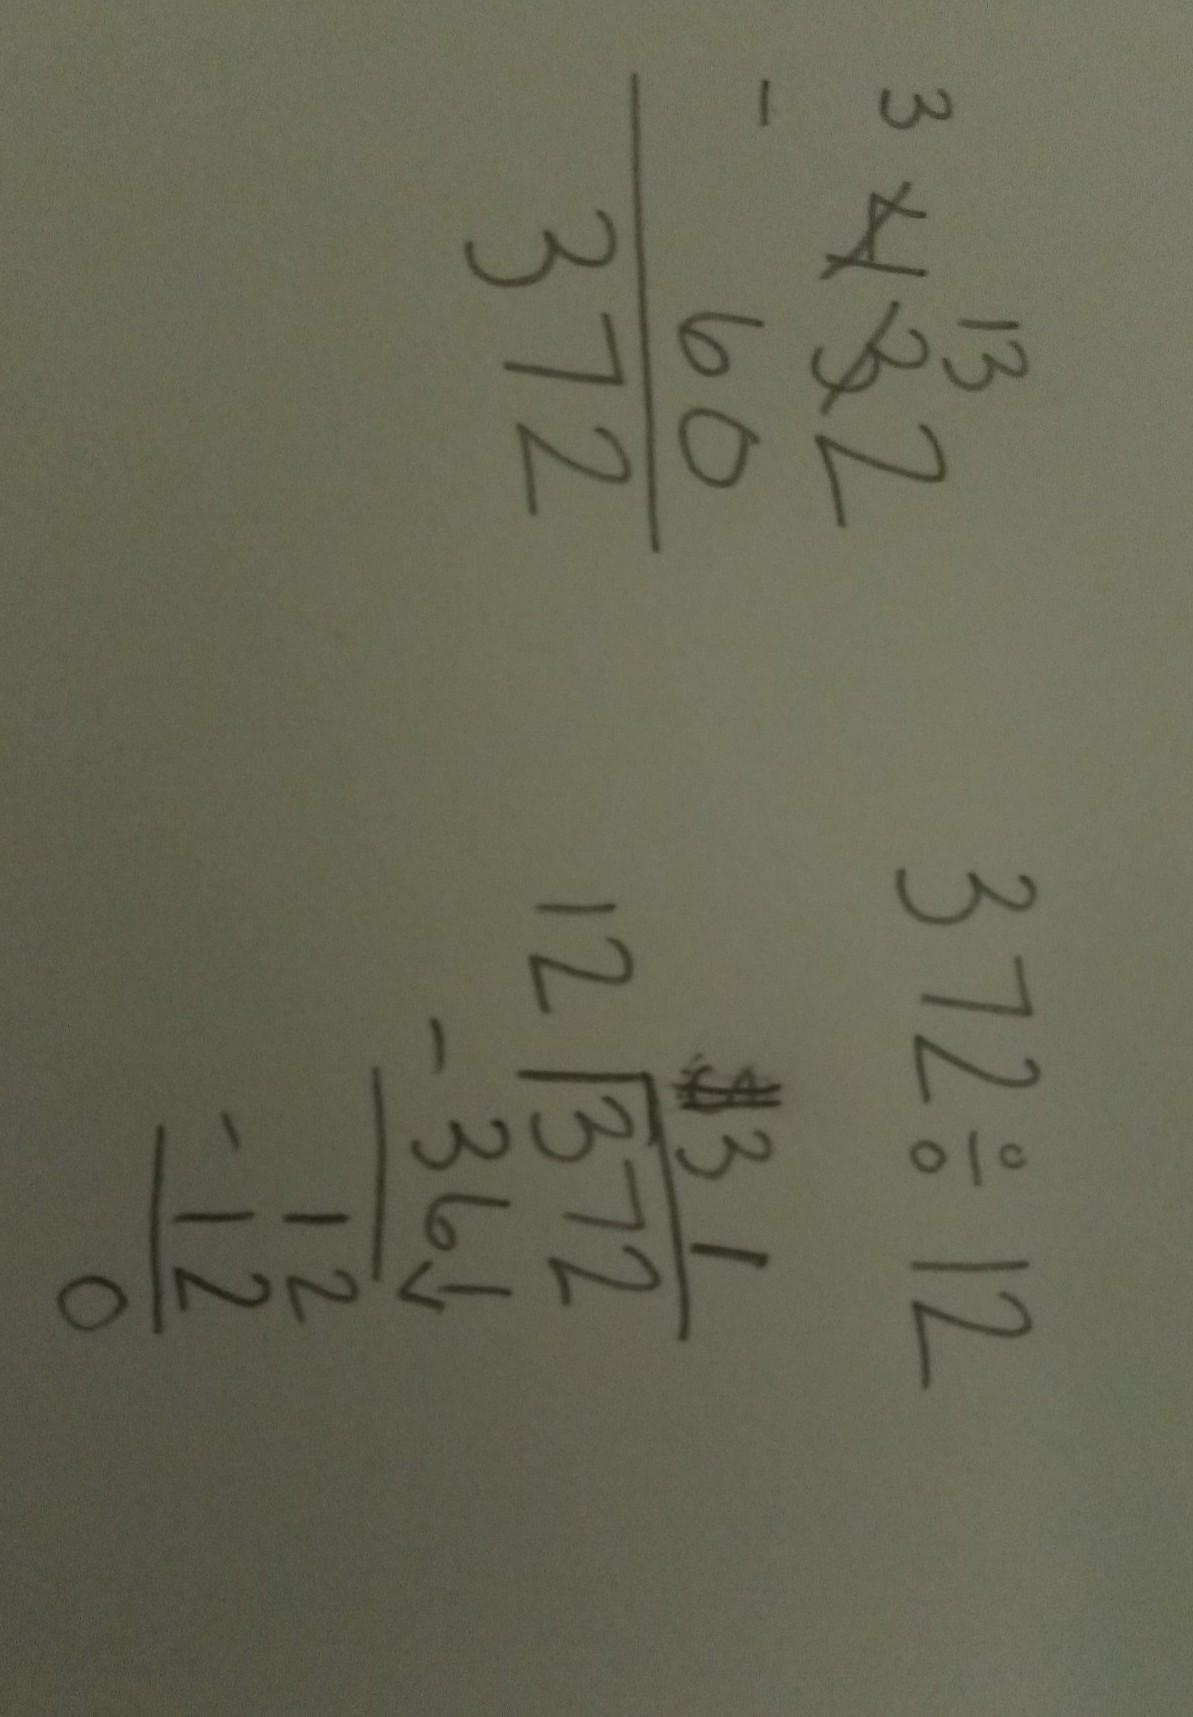 3 13
432
- 60
372
372 ÷ 12
31
12 372
- 36↓
12
- 12
0